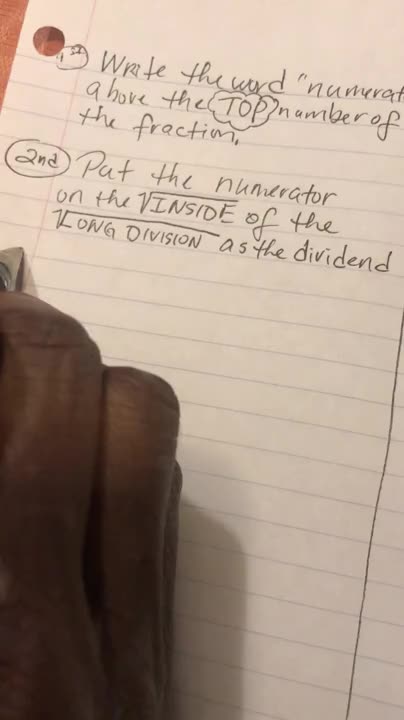 1st Write the word "numerat
above the TOP number of
the fraction.
2nd Put the numerator
on the INSIDE of the
LONG DIVISION as the dividend